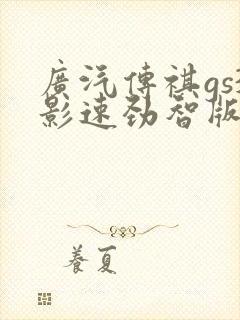 廣汽傳祺gs3
影速劲智版
養夏